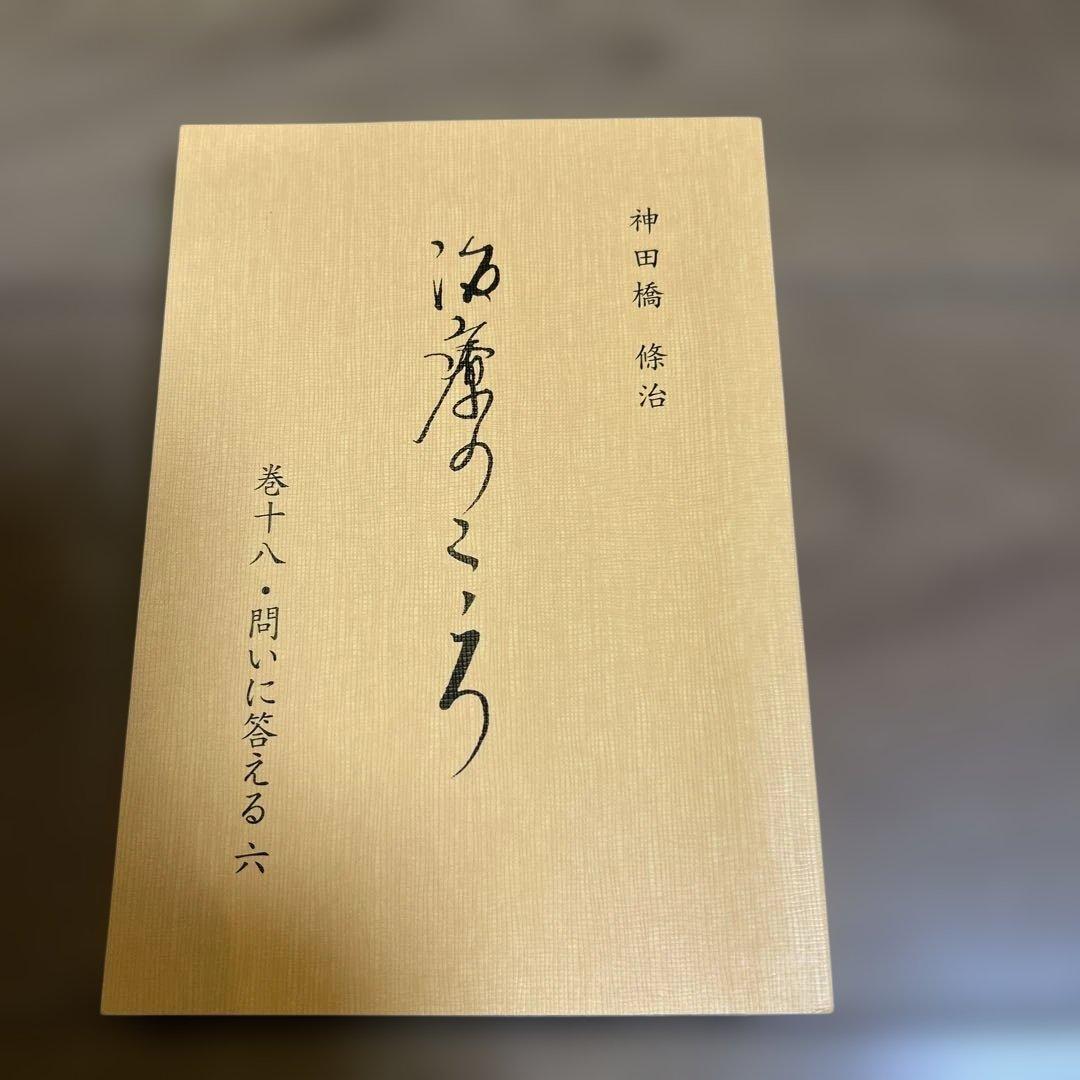 神田橋 條治
治療のこゝろ
巻十八・問いに答える 六